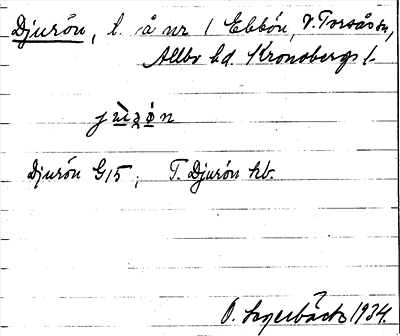 Djurön, l. å nr 1 Ebbön, V. Torsås sn,
Allbo hd. Kronobergs l.
Djurön G15; T. Djurön hb.
1934.